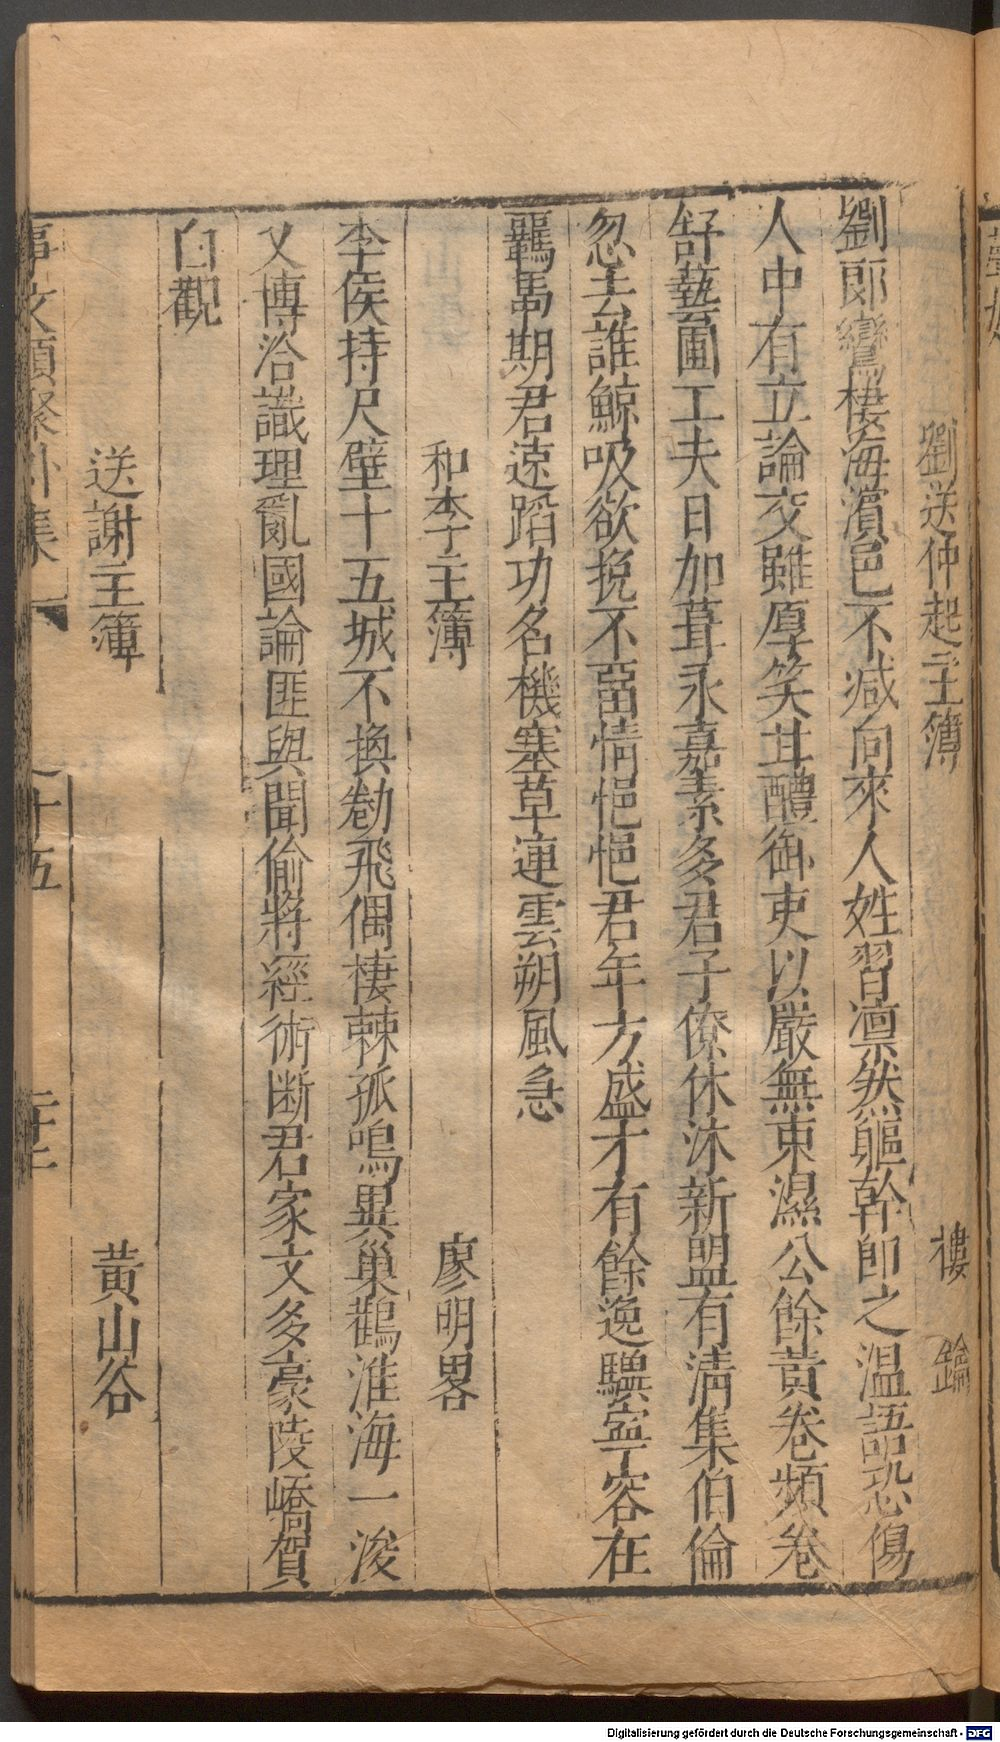 劉送仲起主簿 樓 鑰
劉郎鸞棲海濵邑不减向來人姓習凛然軀幹卽之温語恐傷
人中有立論交雖厚笑其醴御吏以嚴無束濕公餘黄卷頻卷
舒藝圃工夫日加葺永嘉素多君子僚休沐新盟有淸集伯倫
忽去誰鯨吸欲挽不畱情悒悒君年方盛才有餘逸驥寧容在
羈馽期君遠蹈功名機塞草連雲朔風急
和李主簿 廖明畧
李侯持尺璧十五城不換勌飛偶棲棘孤鳴異巢鸛淮海一浚
又博洽識理亂國論匪與聞偷將經術断君家文多豪陵嶠賀
白觀
送謝主簿 黄山谷
事文類聚外集 十五
Digitalisierung gefördert durch die Deutsche Forschungsgemeinschaft - DFG